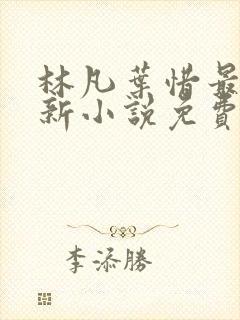 林凡葉惜最
新小說免費
李添勝